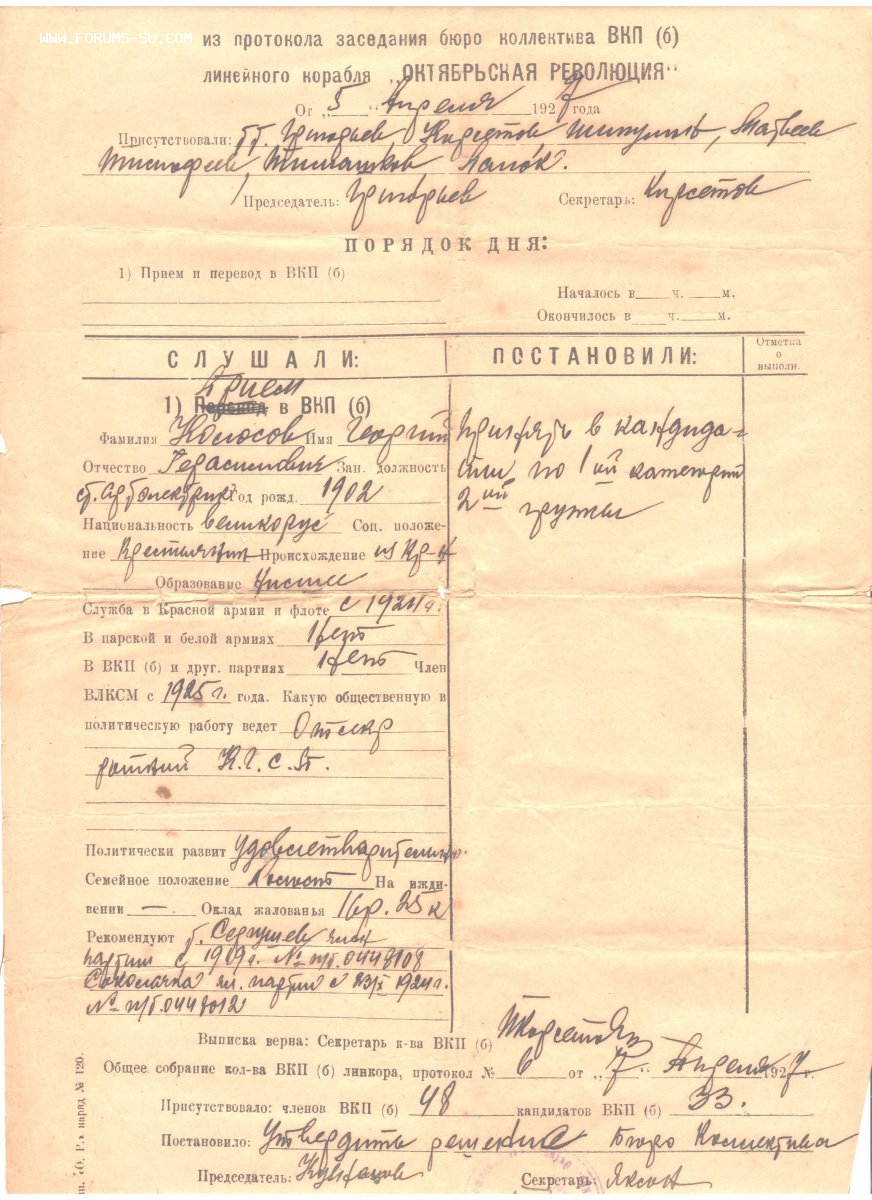 WWW.FORUMS-SU.COM
из протокола заседания бюро коллектива ВКП (б)
линейного корабля „ОКТЯБРЬСКАЯ РЕВОЛЮЦИЯ"
От „5" Апреля 1927 года
Присутствовали: т.т. Григорьев, Шипулин, Матвеев
Тимофеев, Тимашков
Председатель: Григорьев Секретарь:
ПОРЯДОК ДНЯ:
1) Прием и перевод в ВКП (б)
Началось в ч. м.
Окончилось в ч. м.
СЛУШАЛИ: ПОСТАНОВИЛИ: Отметка о выполн.
Прием
1) Перевод в ВКП (б)
Фамилия Колосов Имя Георгий
Отчество Герасимович Зан. должность
ст. Год рожд. 1902
Национальность великорус Соц. положе-
ние Крестьянин Происхождение из кр-н
Образование низшее
Служба в Красной армии и флоте с 1924 г.
В царской и белой армиях Нет
В ВКП (б) и друг. партиях Нет Член
ВЛКСМ с 1925 г. года. Какую общественную и
политическую работу ведет
Политически развит удовлетварительно.
Семейное положение Холост На ижди-
вении — Оклад жалованья 16 р. 25 к
Рекомендуют т. член
партии с 1919 г. № п/б. 0448108
чл. партии с 1924 г.
№ п/б. 0448012
Принять в кандида-
ты по 1ой категории
2ой группы
Выписка верна: Секретарь к-ва ВКП (б)
Общее собрание кол-ва ВКП (б) линкора, протокол № 6 от „7" Апреля 1927 г.
Присутствовало: членов ВКП (б) 48 кандидатов ВКП (б) 33.
Постановило: Утвердить решение Бюро Коллектива
Председатель: Секретарь:
наряд № 120.